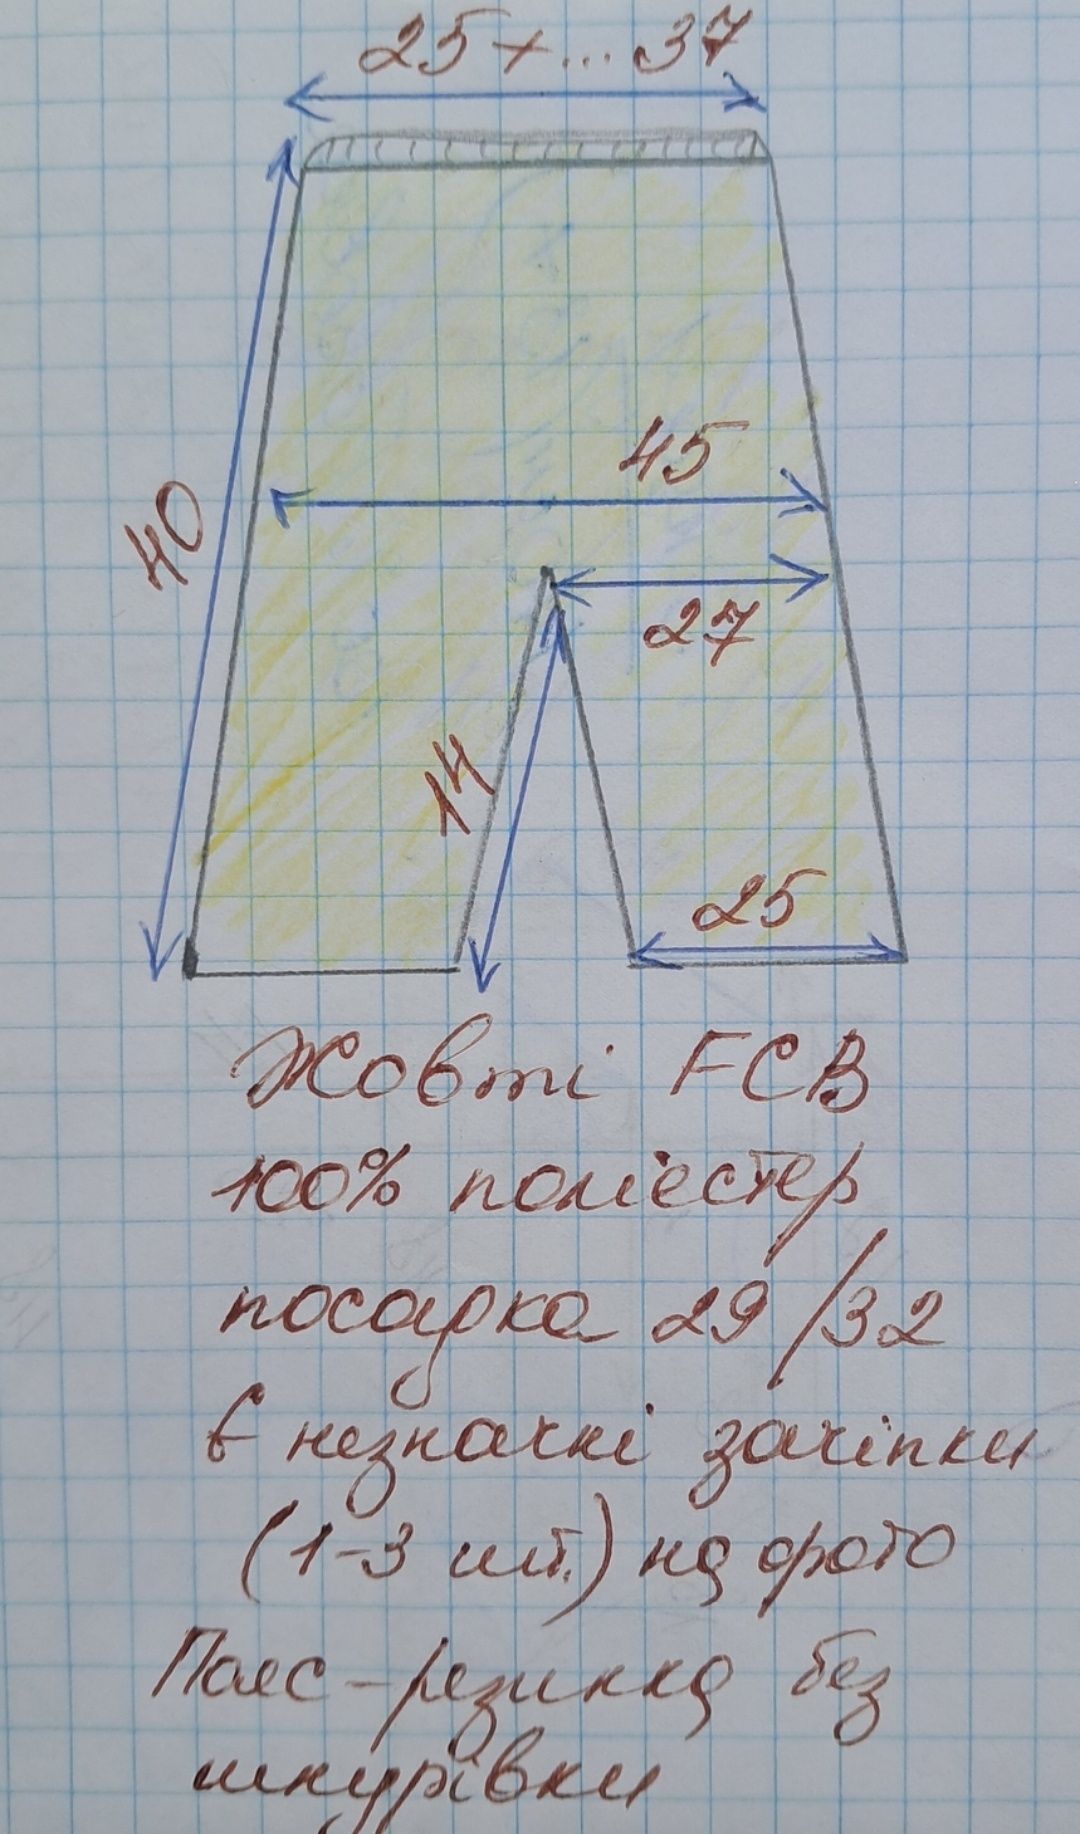 25+...37
40
45
27
14
25
Жовті FCB
100% поліестер
посадка 29/32
є незначні зачіпки
(1-3 шт.) на фото
Пояс-резинка без
шнурівки